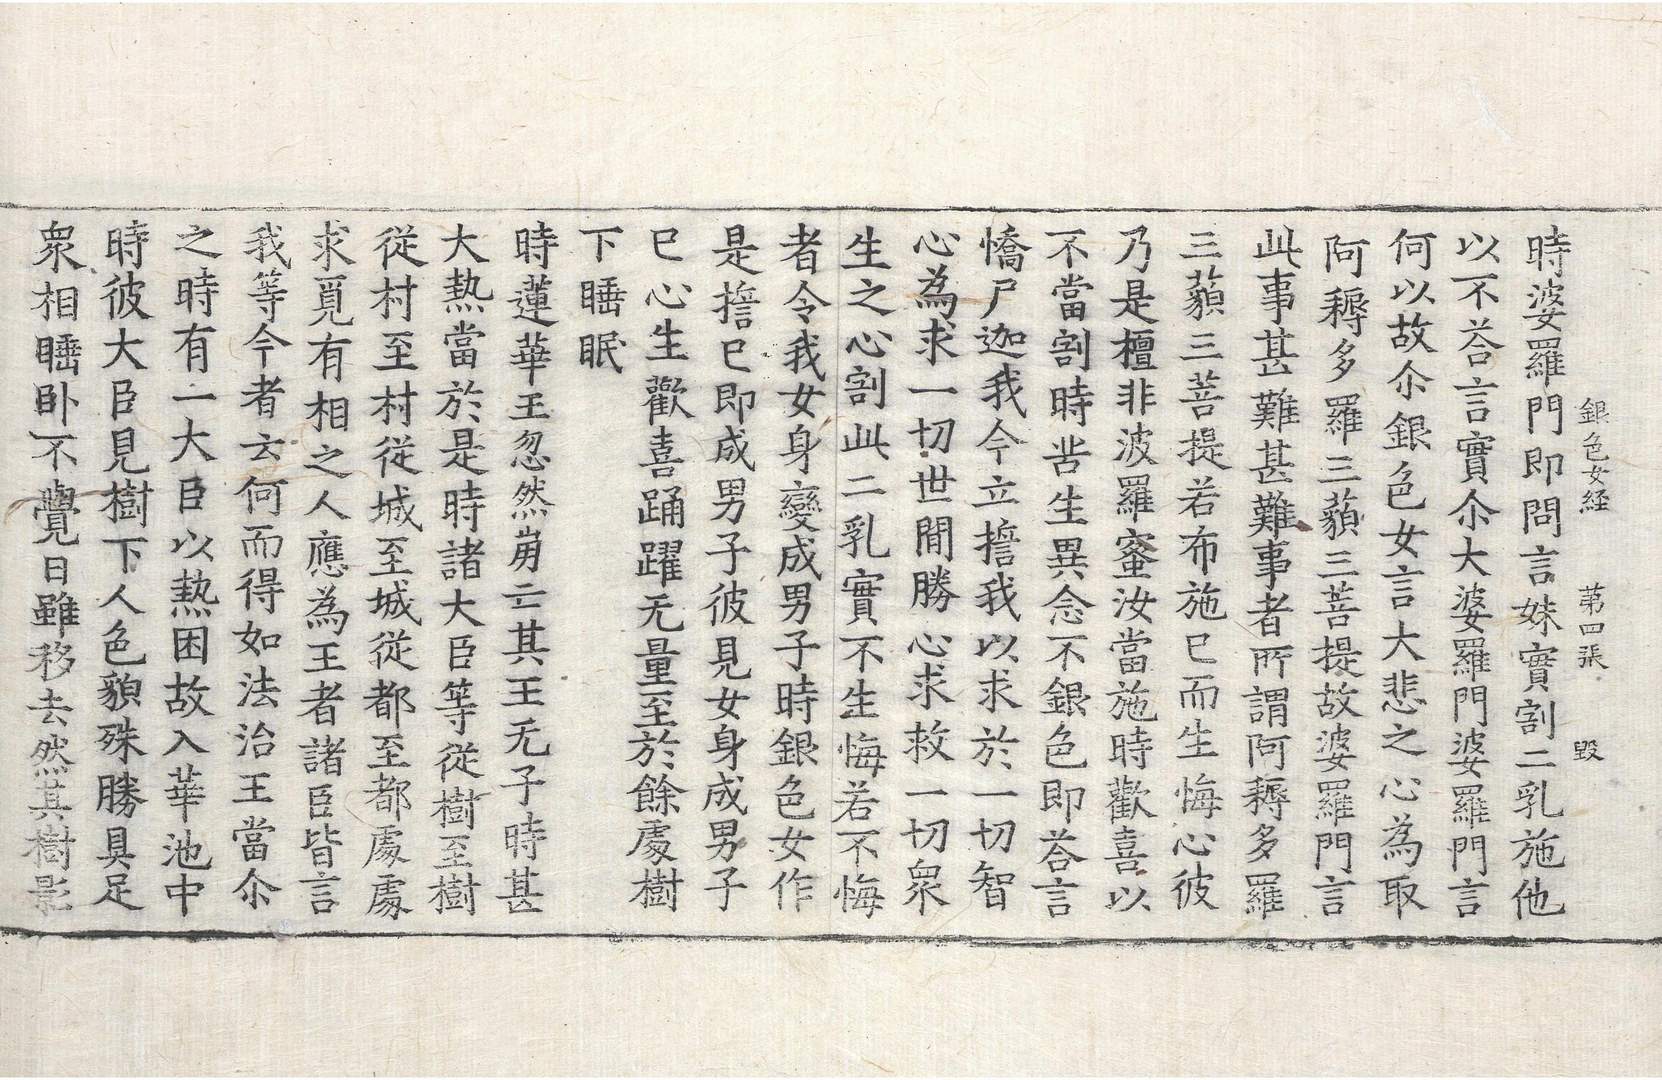 銀色女経 第四張 毀
時婆羅門即問言妹實割二乳施他
以不荅言實尒大婆羅門婆羅門言
何以故尒銀色女言大悲之心為取
阿耨多羅三藐三菩提故婆羅門言
此事甚難甚難事者所謂阿耨多羅
三藐三菩提若布施已而生悔心彼
乃是檀非波羅蜜汝當施時歡喜以
不當割時苦生異念不銀色即荅言
憍尸迦我今立擔我以求於一切智
心為求一切世間勝心求救一切衆
生之心割此二乳實不生悔若不悔
者令我女身變成男子時銀色女作
是擔已即成男子彼見女身成男子
已心生歡喜踊躍无量至於餘處樹
下睡眠
時蓮華王忽然崩亡其王无子時甚
大熱當於是時諸大臣等從樹至樹
從村至村從城至城從都至都處處
求覓有相之人應為王者諸臣皆言
我等今者云何而得如法治王當尒
之時有一大臣以熱困故入華池中
時彼大臣見樹下人色貌殊勝具足
衆相睡卧不覺日雖移去然其樹影